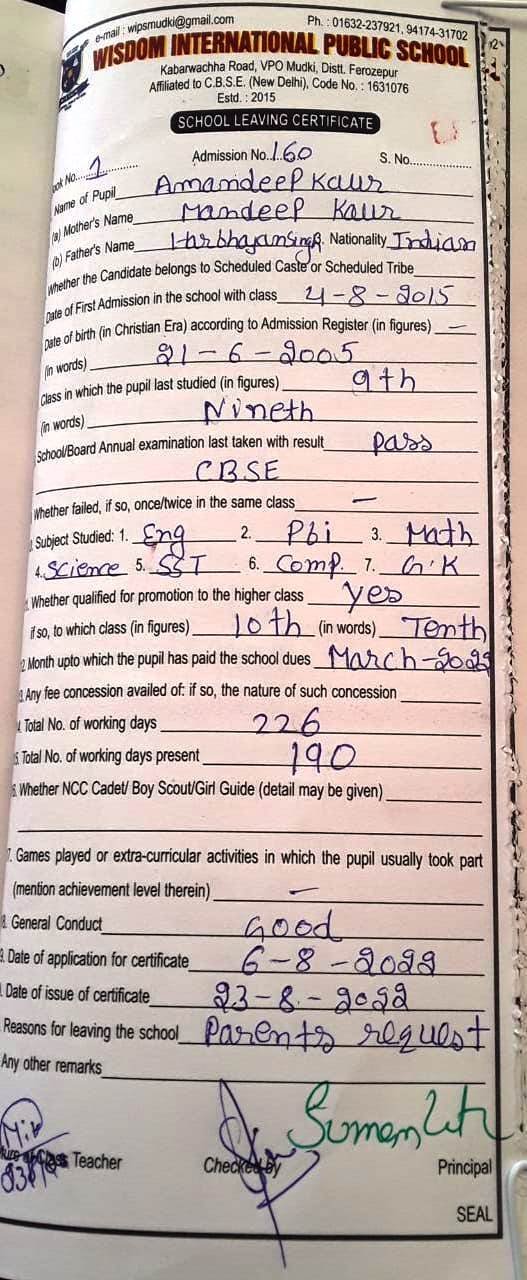 e-mail : wipsmudki@gmail.com Ph. : 01632-237921, 94174-31702
WISDOM INTERNATIONAL PUBLIC SCHOOL
Kabarwachha Road, VPO Mudki, Distt. Ferozepur
Affiliated to C.B.S.E. (New Delhi), Code No. : 1631076
Estd. : 2015
SCHOOL LEAVING CERTIFICATE
ook No. 1 Admission No. 160 S. No.
Name of Pupil Amandeep Kaur
(a) Mother's Name Mandeep Kaur
(b) Father's Name Harbhajan Singh. Nationality Indian
Whether the Candidate belongs to Scheduled Caste or Scheduled Tribe
Date of First Admission in the school with class 4-8-2015
Date of birth (in Christian Era) according to Admission Register (in figures) —
(in words) 21-6-2005
Class in which the pupil last studied (in figures) 9th
(in words) Nineth
School/Board Annual examination last taken with result pass
CBSE
Whether failed, if so, once/twice in the same class —
Subject Studied: 1. Eng 2. Pbi 3. Math
4. Science 5. SST 6. Comp. 7. G.K
Whether qualified for promotion to the higher class yes
if so, to which class (in figures) 10th (in words) Tenth
2. Month upto which the pupil has paid the school dues March-2022
3. Any fee concession availed of: if so, the nature of such concession
4. Total No. of working days 226
5. Total No. of working days present 190
6. Whether NCC Cadet/ Boy Scout/Girl Guide (detail may be given)
7. Games played or extra-curricular activities in which the pupil usually took part
(mention achievement level therein) —
8. General Conduct Good
9. Date of application for certificate 6-8-2022
Date of issue of certificate 23-8-2022
Reasons for leaving the school Parents request
Any other remarks
Suman
Teacher Checked By Principal
SEAL